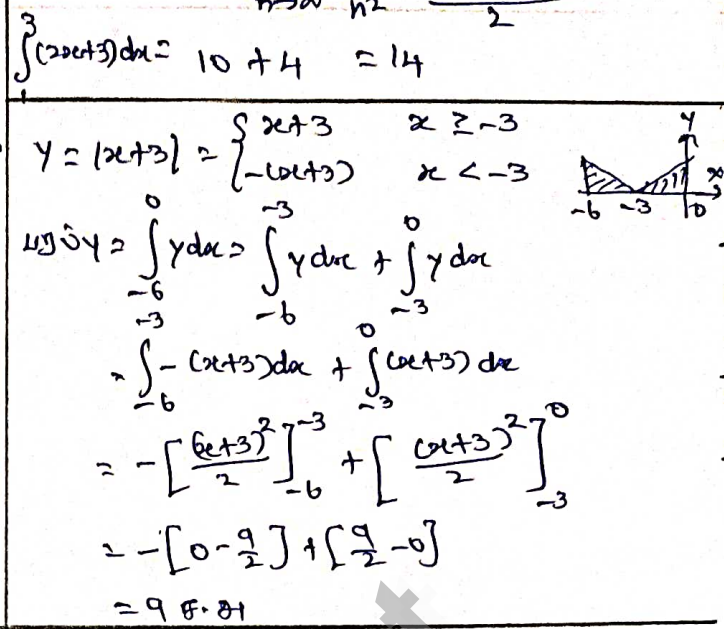 n→∞ n² 2
∫₁³(2x+3)dx = 10 + 4 = 14
y = |x+3| = { x+3 x ≥ -3
-(x+3) x < -3
y x -6 -3 0
பரப்பு = ∫₋₆⁰ y dx = ∫₋₆⁻³ y dx + ∫₋₃⁰ y dx
= ∫₋₆⁻³ -(x+3)dx + ∫₋₃⁰ (x+3) dx
= -[(x+3)²/2]₋₆⁻³ + [(x+3)²/2]₋₃⁰
= -[0-9/2] + [9/2-0]
= 9 ச.அ